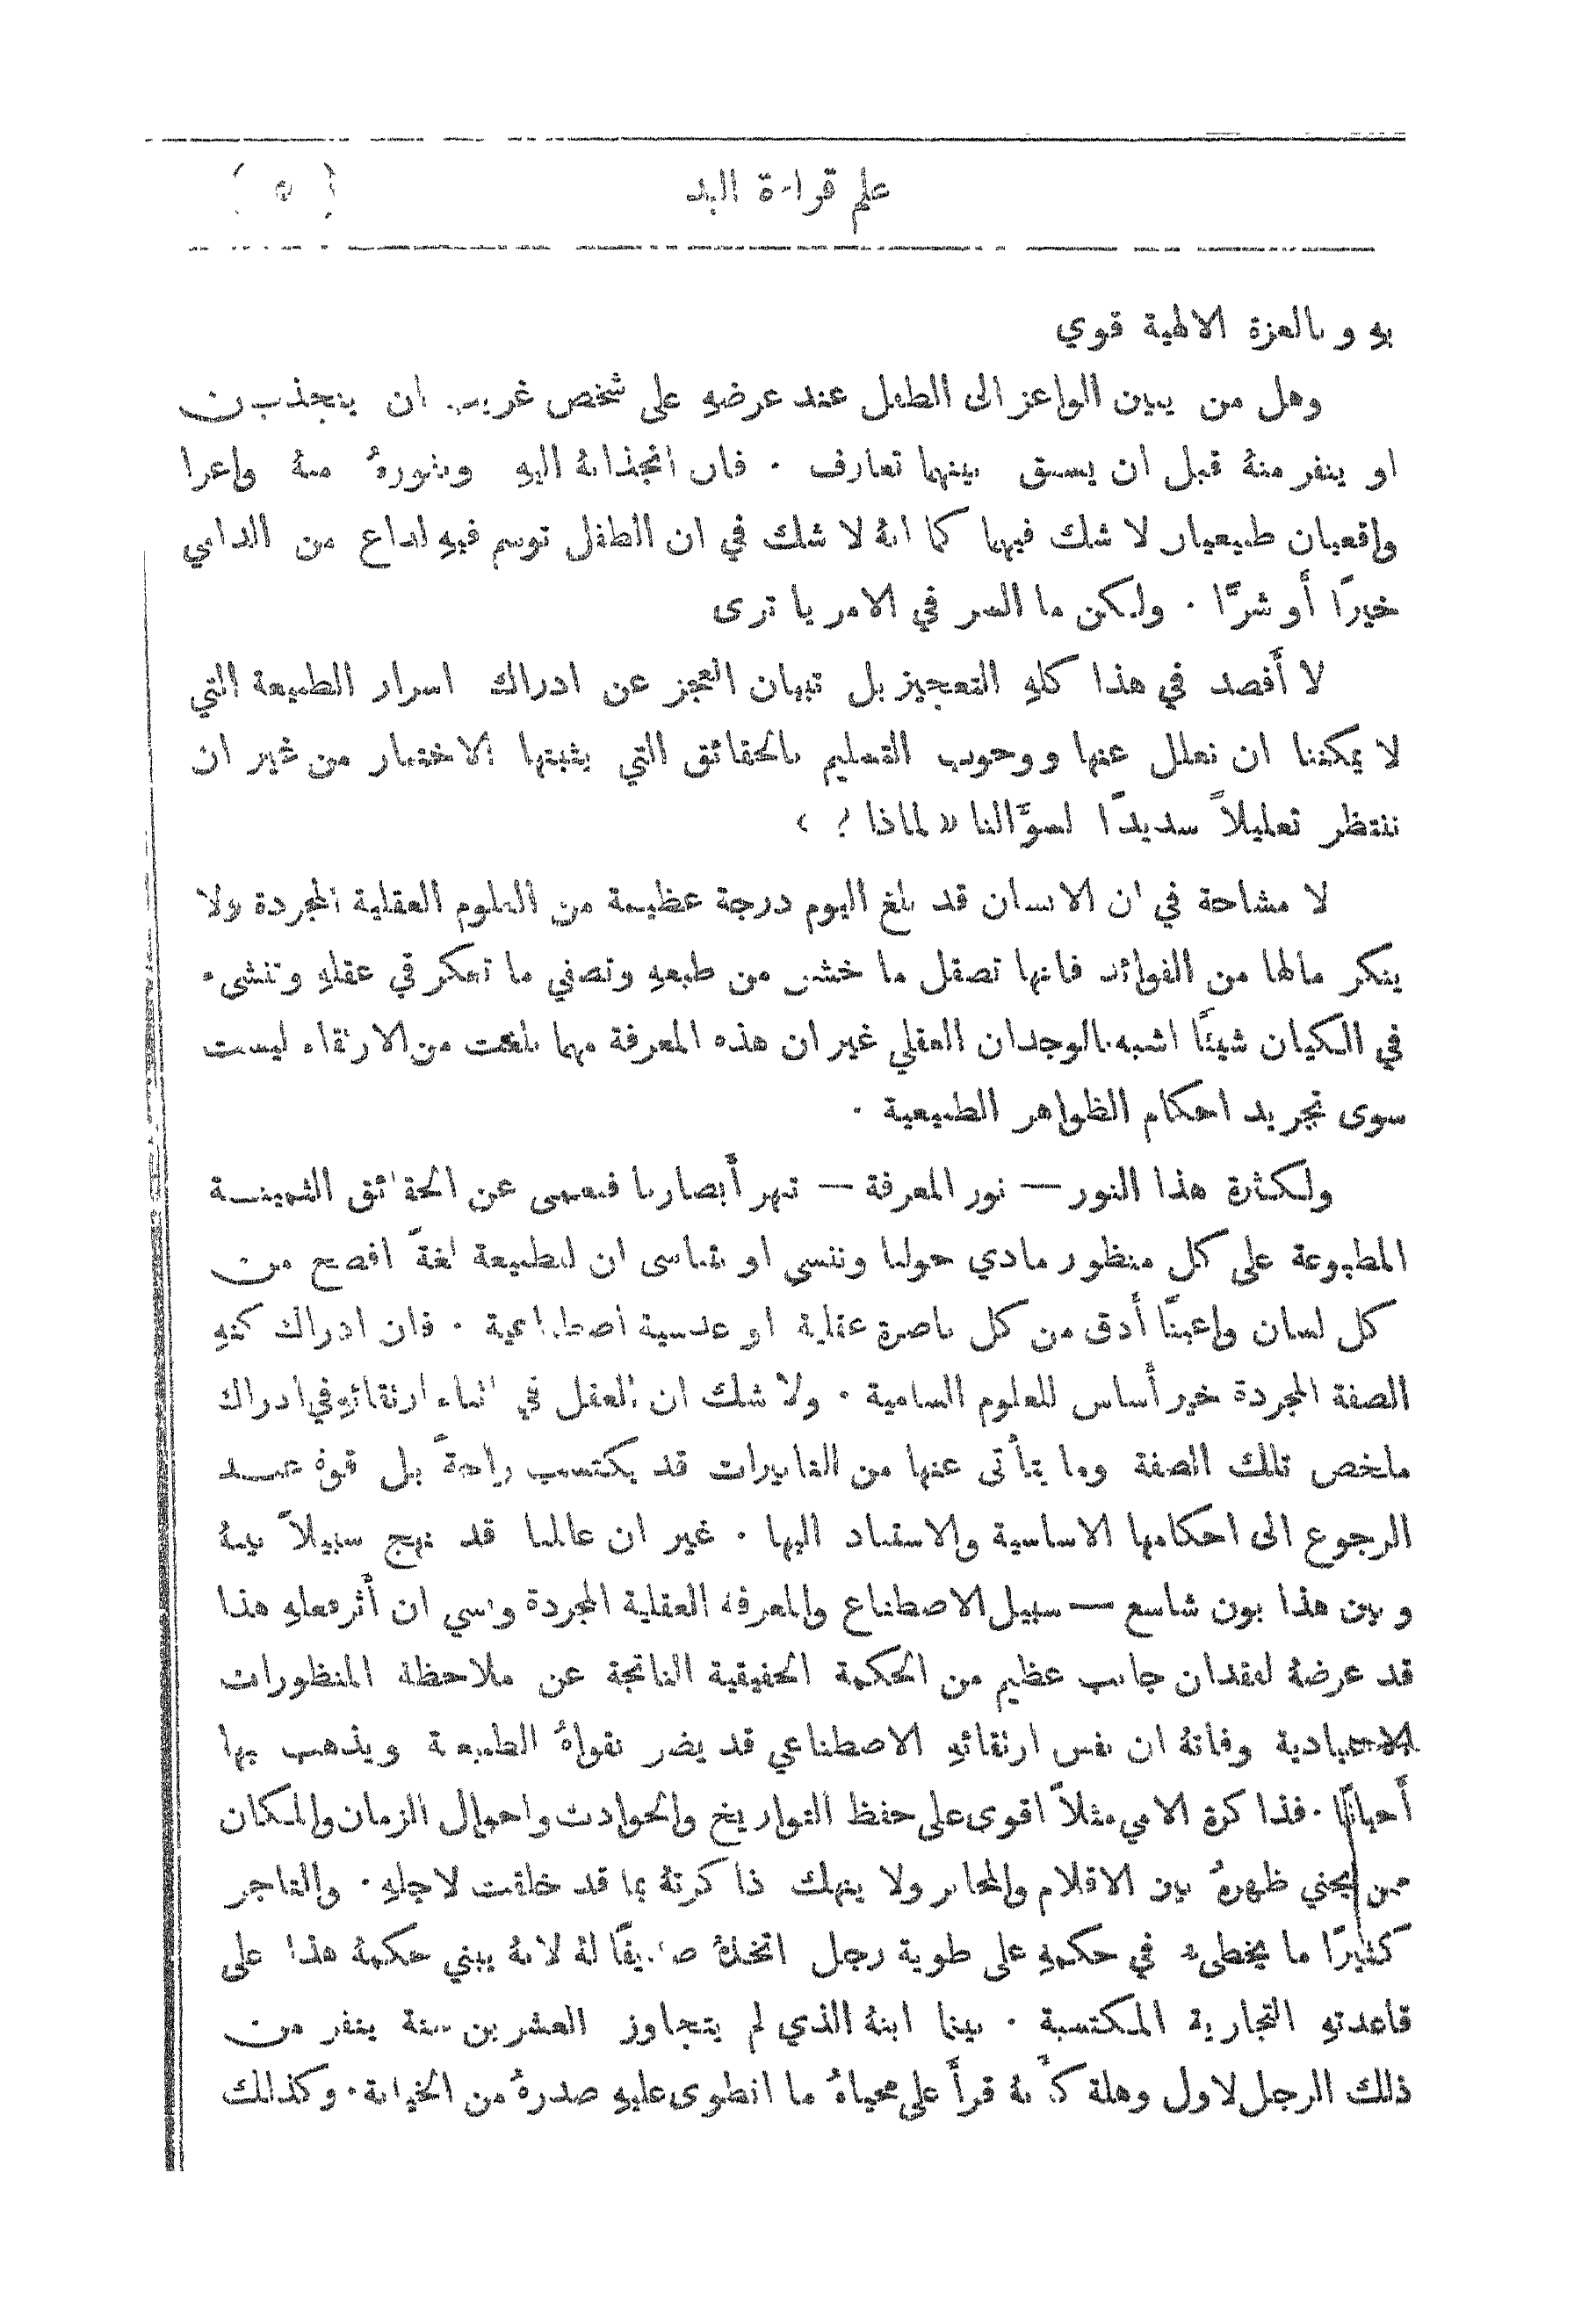 علم قراءة اليد ( ٥ )
به وبالعزة الالهية قوي
وهل من يبين الواعز الى الطفل عند عرضهِ على شخص غريب ان ينجذب
او ينفر منهُ قبل ان يسبق بينهما تعارف . فان انجذابهُ اليهِ ونفورهُ منهُ واعزا
واقعيان طبيعيان لا شك فيهما كما انهُ لا شك في ان الطفل توسم فيهِ لداع من الداعي
خيرًا أو شرًّا . ولكن ما السر في الامر يا ترى
لا أقصد في هذا كلهِ التعجيز بل تبيان العجز عن ادراك اسرار الطبيعة التي
لا يمكننا ان نعلل عنها ووجوب التسليم بالحقائق التي يثبتها الاختبار من غير ان
ننتظر تعليلاً سديدًا لسؤالنا «لماذا ؟ »
لا مشاحة في ان الانسان قد بلغ اليوم درجة عظيمة من العلوم العقلية المجردة ولا
ينكر مالها من الفوائد فانها تصقل ما خشن من طبعهِ وتصفي ما تعكر في عقلهِ وتنشىء
في الكيان شيئًا اشبه بالوجدان العقلي غير ان هذه المعرفة مهما بلغت من الارتقاء ليست
سوى تجريد احكام الظواهر الطبيعية .
ولكثرة هذا النور — نور المعرفة — تبهر أبصارنا فنعمى عن الحقائق الثمينة
المطبوعة على كل منظور مادي حولنا وننسى او نتناسى ان للطبيعة لغةً افصح من
كل لسان واعينًا أدق من كل باصرة عقلية او عدسية اصطناعية . فان ادراك كنهِ
الصفة المجردة خير أساس للعلوم السامية . ولا شك ان العقل في اثناء ارتقائهِ في ادراك
ملخص تلك الصفة وما يتأتى عنها من التاثيرات قد يكتسب راحةً بل قوة عند
الرجوع الى احكامها الاساسية والاستناد اليها . غير ان عالمنا قد نهج سبيلاً بينهُ
وبين هذا بون شاسع — سبيل الاصطناع والمعرفة العقلية المجردة ونسي ان أثر فعلهِ هذا
قد عرضهُ لفقدان جانب عظيم من الحكمة الحقيقية الناتجة عن ملاحظة المنظورات
الاعتيادية وفاتهُ ان نفس ارتقائهِ الاصطناعي قد يضر بقواهُ الطبيعية ويذهب بها
أحيانًا . فذاكرة الامي مثلاً اقوى على حفظ التواريخ والحوادث واحوال الزمان والمكان
ممن يحني ظهرهُ بين الاقلام والمحابر ولا ينهك ذاكرتهُ بما قد خلقت لاجلهِ . والتاجر
كثيرًا ما يخطىء في حكمهِ على طوية رجل اتخذهُ صديقًا لهُ لانهُ يبني حكمهُ هذا على
قاعدتهِ التجارية المكتسبة . بينما ابنهُ الذي لم يتجاوز العشرين سنة ينفر من
ذلك الرجل لاول وهلة كأنهُ قرأ على محياهُ ما انطوى عليهِ صدرهُ من الخيانة . وكذلك